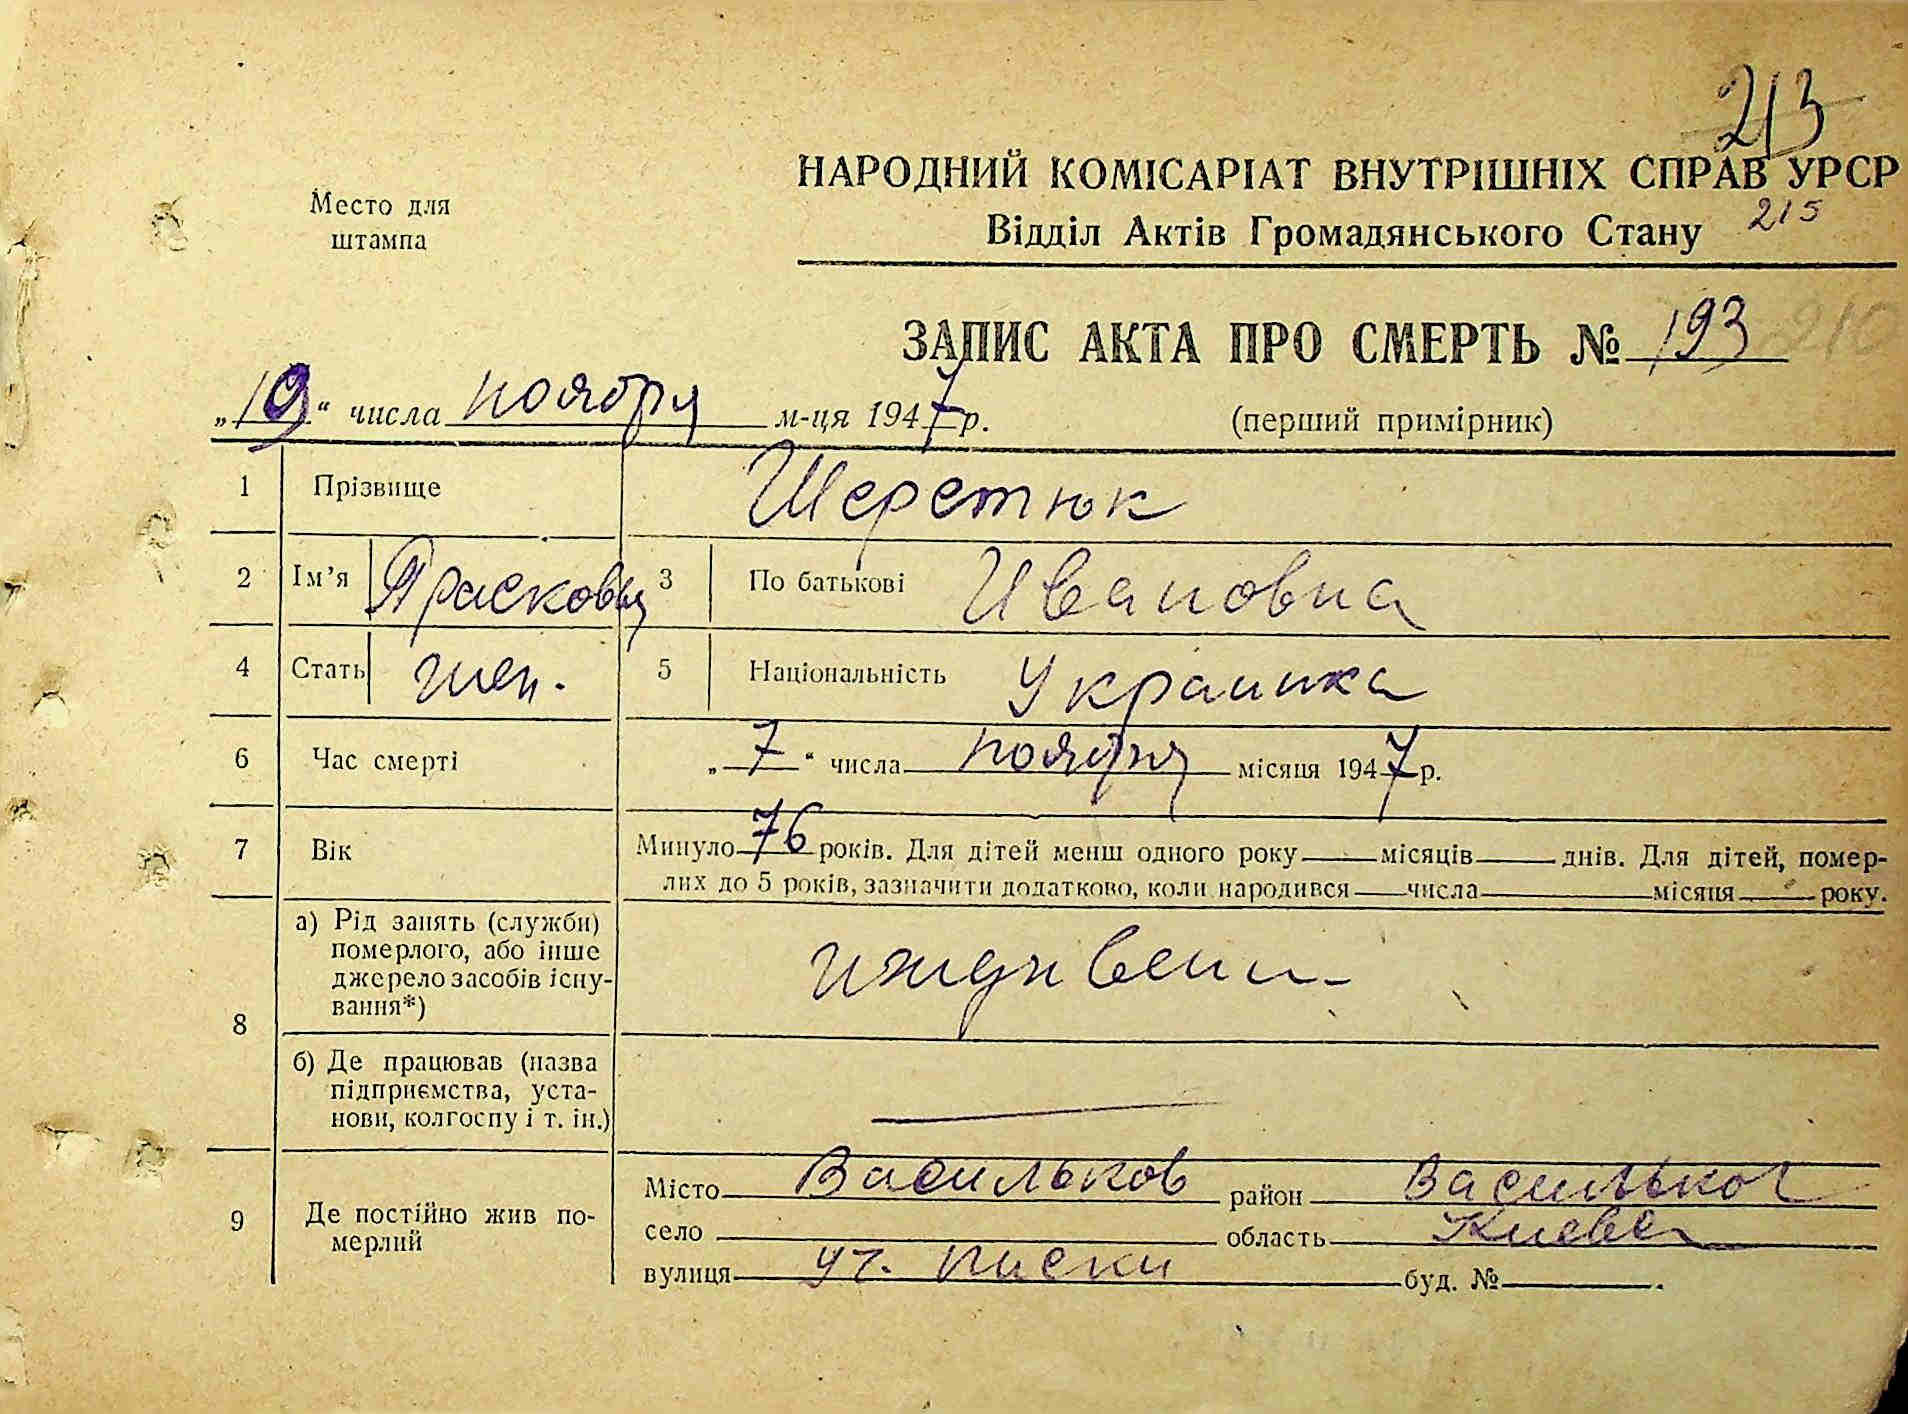 213
НАРОДНИЙ КОМІСАРІАТ ВНУТРІШНІХ СПРАВ УРСР
Место для
штампа
Відділ Актів Громадянського Стану 215
ЗАПИС АКТА ПРО СМЕРТЬ № 193 210
„19“ числа ноября м-ця 1947 р. (перший примірник)
1 Прізвище Шеретюк
2 Ім’я Прасковья 3 По батькові Ивановна
4 Стать жен. 5 Національність Украинка
6 Час смерті „7“ числа ноября місяця 1947 р.
7 Вік Минуло 76 років. Для дітей менш одного року місяців днів. Для дітей, помер-
лих до 5 років, зазначити додатково, коли народився числа місяця року.
8 а) Рід занять (служби)
померлого, або інше
джерело засобів існу-
вання*)
иждивени-
б) Де працював (назва
підприємства, уста-
нови, колгоспу і т. ін.)
9 Де постійно жив по-
мерлий
Місто Васильков район Васильков
село область Киев
вулиця уч. Писки буд. №